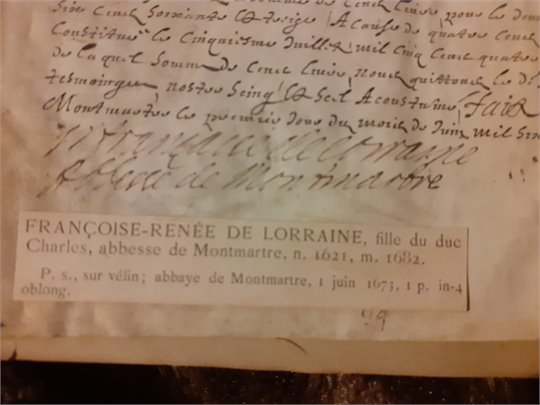 somme de Cent Liures pour le
Six Cent Soixante et treize, A cause de quatre Cent
Constitué le Cinquiesme Juillet, mil Cinq Cent quatre
de laquel Somme de Cent Liures, nous quittons le d.
tesmoing, nostre Seing, et Seel Acoustumé, fait
Montmartre le premier Jour du mois de Juin mil Six
françoise de lorraine
Abbesse de Montmartre
FRANÇOISE-RENÉE DE LORRAINE, fille du duc
Charles, abbesse de Montmartre, n. 1621, m. 1682.
P. s., sur vélin; abbaye de Montmartre, 1 juin 1673, 1 p. in-4
oblong.